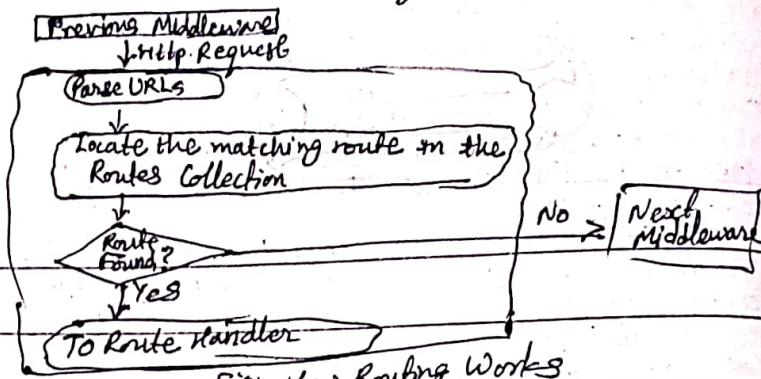 Previous Middleware
Http. Request
Parse URLs
Locate the matching route in the
Routes Collection
Route
Found?
No
Next
Middleware
Yes
To Route Handler
Routing Works